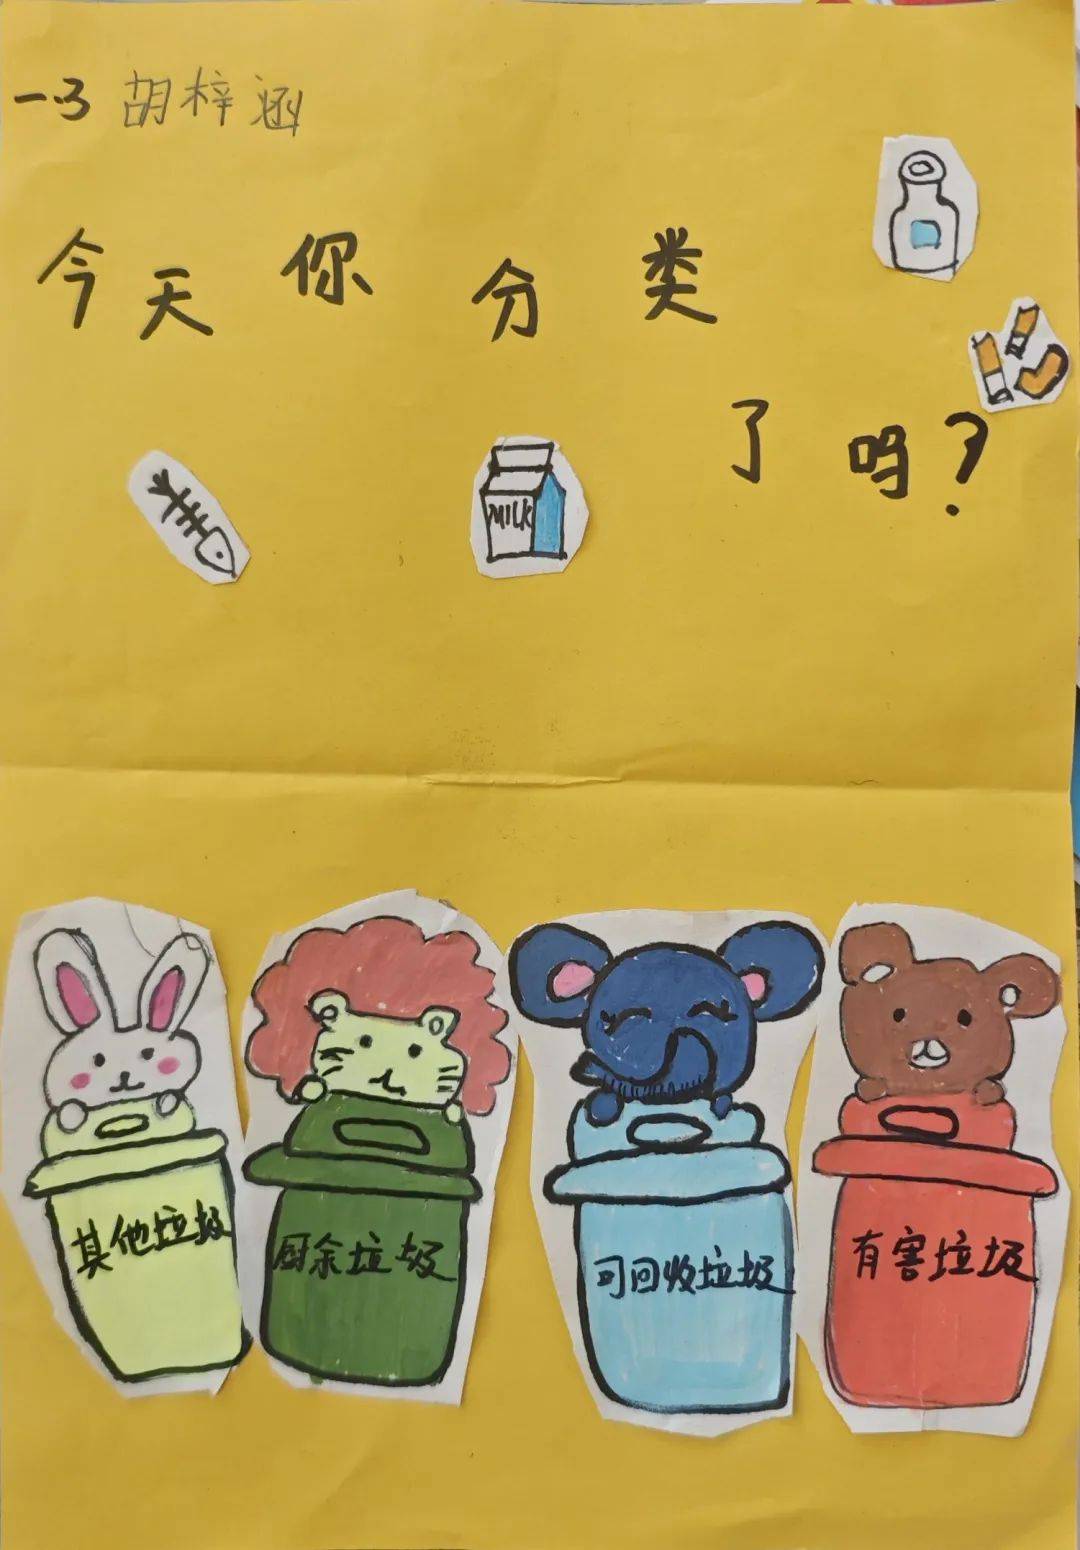 一.3 胡梓涵
今天你分类
了吗?
MILK
其他垃圾
厨余垃圾
可回收垃圾
有害垃圾